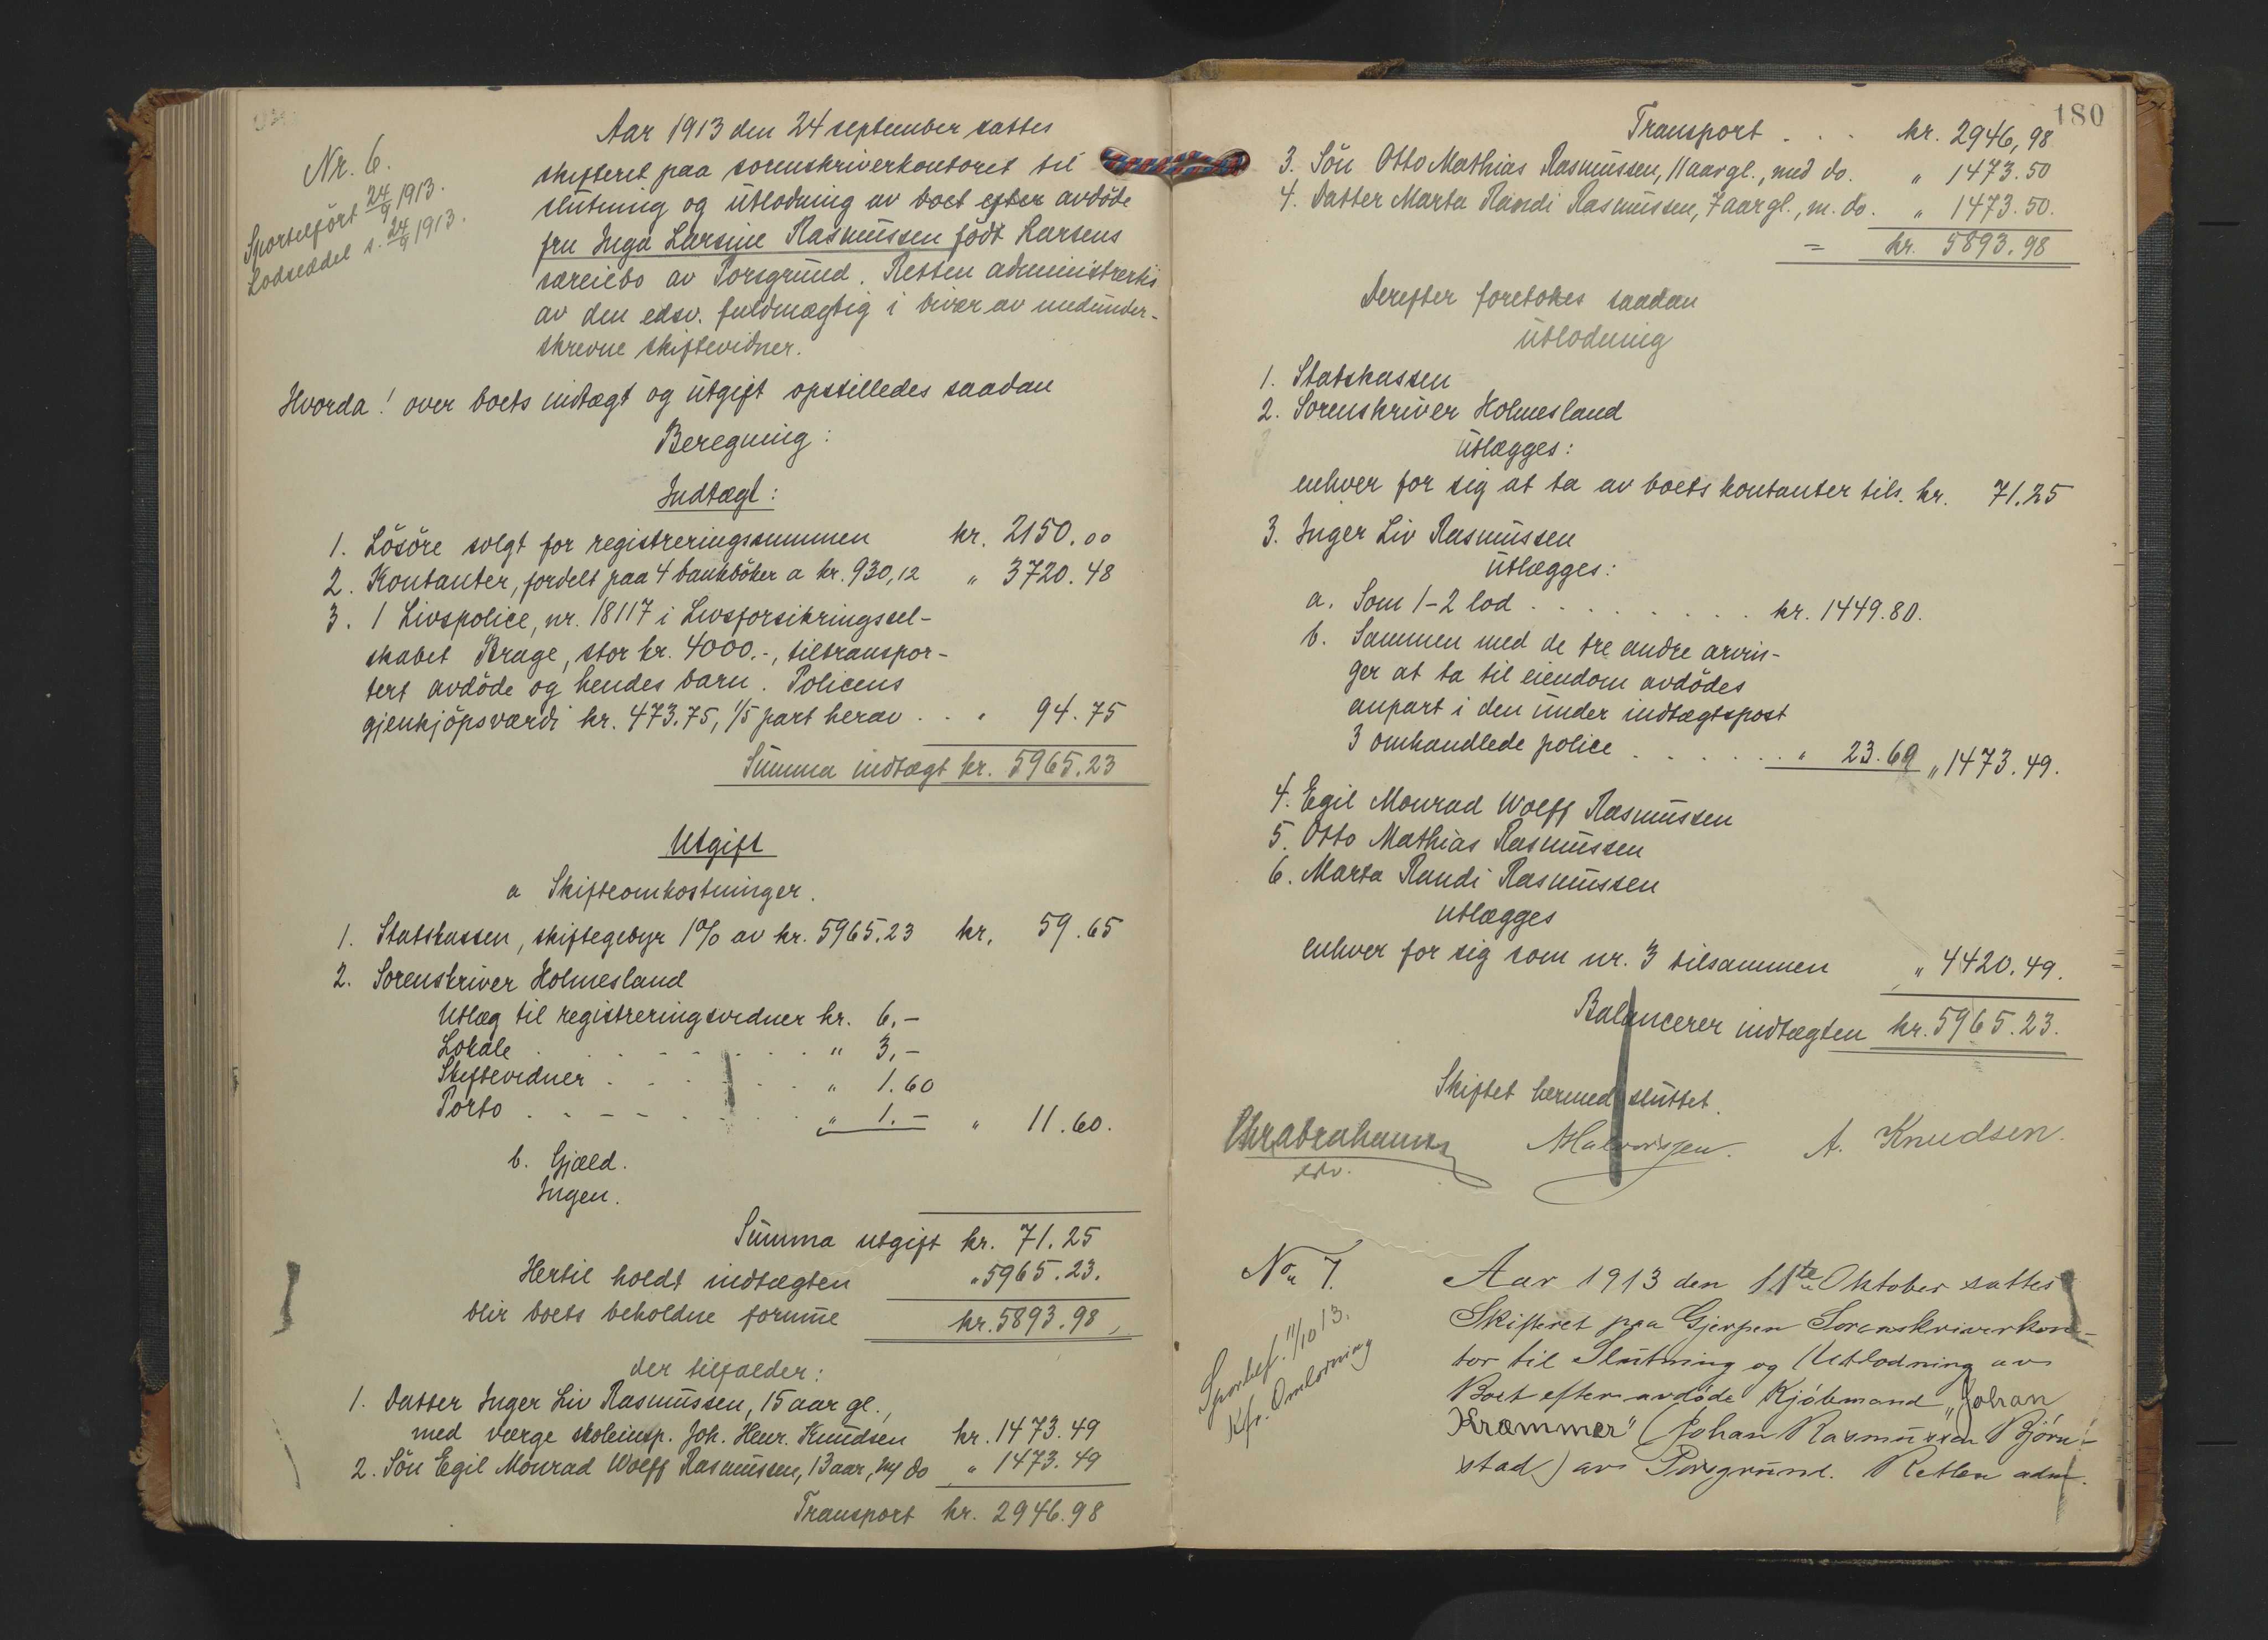 Nr. 6.
Sportelført 24/9 1913.
Lodseddel s. 24/9 1913.
Aar 1913 den 24 september sattes
skifteret paa sorenskriverkontoret til
slutning og utlodning av boet efter avdöde
fru Inga Larsine Rasmussen födt Larsens
særeiebo av Porsgrund. Retten administrertes
av den edsv. fuldmægtig i bivær av medunder-
skrevne skiftevidner.
Hvorda! over boets indtægt og utgift opstilledes saadan
Beregning:
Indtægt:
1. Lösöre solgt for registreringssummen kr. 2150.00
2. Kontanter, fordelt paa 4 bankböker a kr. 930,12 " 3720.48
3. 1 Livspolice, nr. 18117 i Livsforsikringssel-
skabet Brage, stor kr. 4000.-, tiltranspor-
tert avdöde og hendes barn. Policens
gjenkjöpsværdi kr. 473.75, 1/5 part herav . . " 94.75
Summa indtægt kr. 5965.23
Utgift
a Skifteomkostninger.
1. Statskassen, skiftegebyr 1% av kr. 5965.23 kr. 59.65
2. Sorenskriver Holmesland
Utlæg til registreringsvidner kr. 6.-
Lokale . . . . . . . " 3.-
Skiftevidner . . . . . " 1.60
Porto . . . . . . . " 1.- " 11.60.
b. Gjæld.
Ingen.
Summa utgift kr. 71.25
Hertil holdt indtægten " 5965.23.
blir boets beholdne formue kr. 5893.98,
der tilfalder:
1. Datter Inger Liv Rasmussen, 15 aar gl.,
med værge skoleinsp. Joh. Henr. Knudsen kr. 1473.49
2. Sön Egil Monrad Wolff Rasmussen, 13 aar, m/ do " 1473.49
Transport kr. 2946.98
180
Transport . . . kr. 2946,98
3. Sön Otto Mathias Rasmussen, 11 aar gl., med do. " 1473.50
4. Datter Marta Randi Rasmussen, 7 aar gl., m. do. " 1473.50.
= kr. 5893.98
Derefter foretokes saadan
utlodning
1. Statskassen
2. Sorenskriver Holmesland
utlægges:
enhver for sig at ta av boets kontanter tils. kr. 71.25
3. Inger Liv Rasmussen
utlægges:
a. Som 1-2 lod . . . . . . . . kr. 1449.80.
b. Sammen med de tre andre arvin-
ger at ta til eiendom avdödes
anpart i den under indtægtspost
3 omhandlede police . . . . . . " 23.69 " 1473.49.
4. Egil Monrad Wolff Rasmussen
5. Otto Mathias Rasmussen
6. Marta Randi Rasmussen
utlægges
enhver for sig som nr. 3 tilsammen " 4420.49.
Balancerer indtægten kr. 5965.23.
Skiftet hermed sluttet.
Chr Abrahams Halvorsen. A. Knudsen.
edsv.
No 7.
Sportelf. 11/10 13.
Kfr. Omlodning
Aar 1913 den 11te Oktober sattes
Skifteret paa Gjerpen Sorenskriverkon-
tor til Slutning og Utlodning av
Boet efter avdøde Kjøbmand "Johan
Kræmmer" (Johan Rasmussen Bjørn-
stad) av Porsgrund. Retten adm.